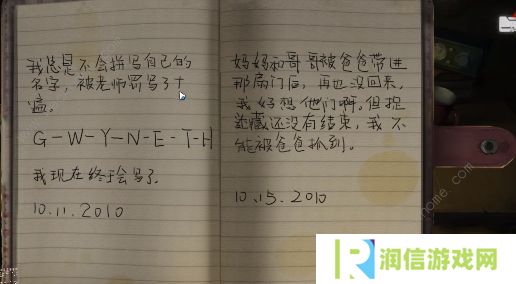 我总是不会拼写自己的
名字，被老师罚写了十
遍。
G-W-Y-N-E-T-H
我现在终于会写了。
10.11.2010
妈妈和哥哥被爸爸带进
那扇门后，再也没回来，
我好想他们啊。但捉
迷藏还没有结束，我不
能被爸爸抓到。
10.15.2010
润信游戏网